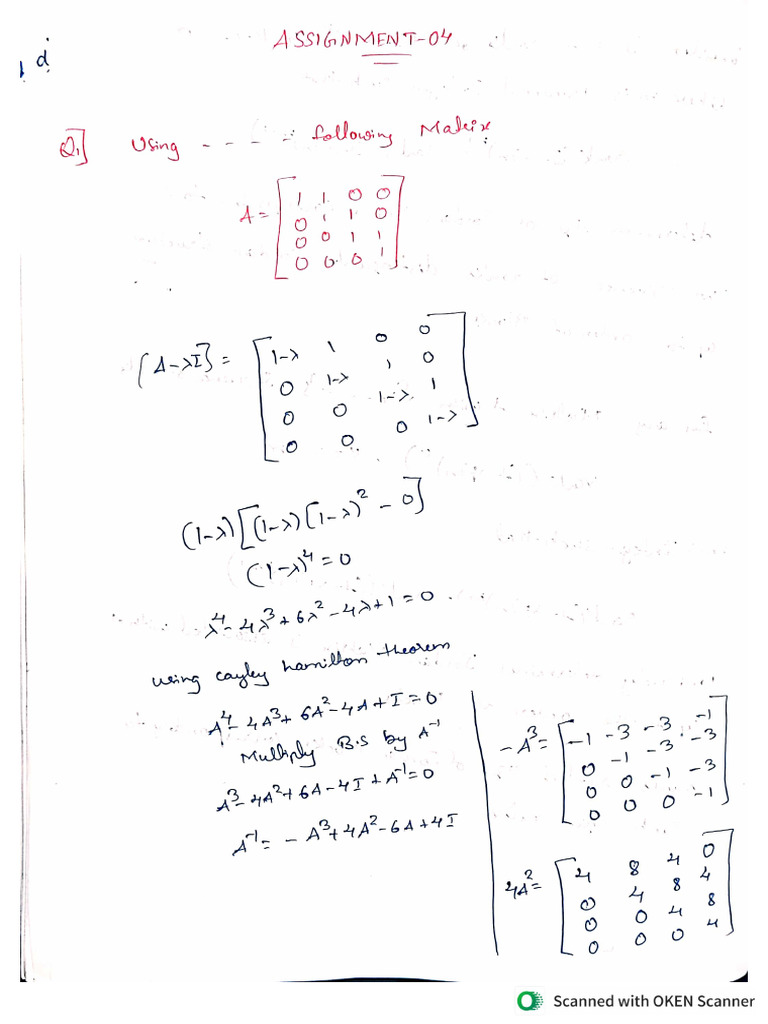 ASSIGNMENT-04
d
Q1] Using - - - - following Matrix
A = [ 1 1 0 0
0 1 1 0
0 0 1 1
0 0 0 1 ]
[A-λI] = [ 1-λ 1 0 0
0 1-λ 1 0
0 0 1-λ 1
0 0 0 1-λ ]
(1-λ)[(1-λ)[1-λ)² - 0]
(1-λ)⁴ = 0
λ⁴ - 4λ³ + 6λ² - 4λ + 1 = 0
using cayley hamilton theorem
A⁴ - 4A³ + 6A² - 4A + I = 0
Multiply B.S by A⁻¹
A³ - 4A² + 6A - 4I + A⁻¹ = 0
A⁻¹ = - A³ + 4A² - 6A + 4I
-A³ = [ -1 -3 -3 -1
0 -1 -3 -3
0 0 -1 -3
0 0 0 -1 ]
4A² = [ 4 8 4 0
0 4 8 4
0 0 4 8
0 0 0 4 ]
Scanned with OKEN Scanner